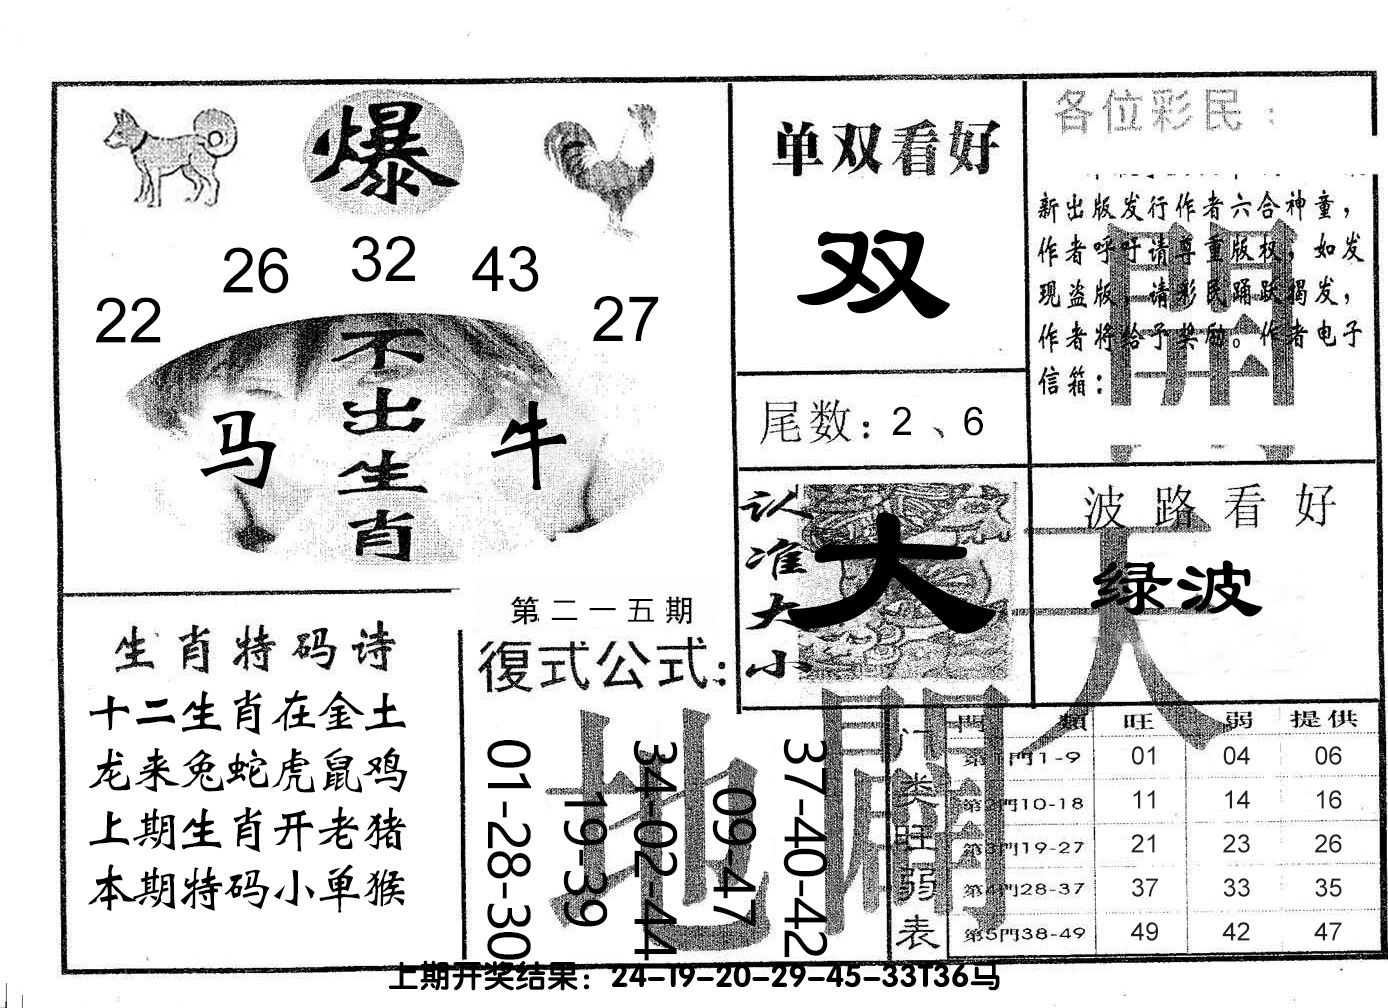 爆
22 26 32 43 27
不出生肖
马 牛
生肖特码诗
十二生肖在金土
龙来兔蛇虎鼠鸡
上期生肖开老猪
本期特码小单猴
第二一五期
復式公式:
01-28-30
19-39
34-02-44
09-47
37-40-42
单双看好
双
尾数: 2、6
认准大小
大
各位彩民:
新出版发行作者六合神童，
作者呼吁请尊重版权，如发
现盗版，请彩民踊跃揭发，
作者将给予奖励。作者电子
信箱:
波路看好
绿波
天
開
地
闢
门类旺弱表
門類 旺 弱 提供
第1門1-9 01 04 06
第2門10-18 11 14 16
第3門19-27 21 23 26
第4門28-37 37 33 35
第5門38-49 49 42 47
上期开奖结果：24-19-20-29-45-33T36马